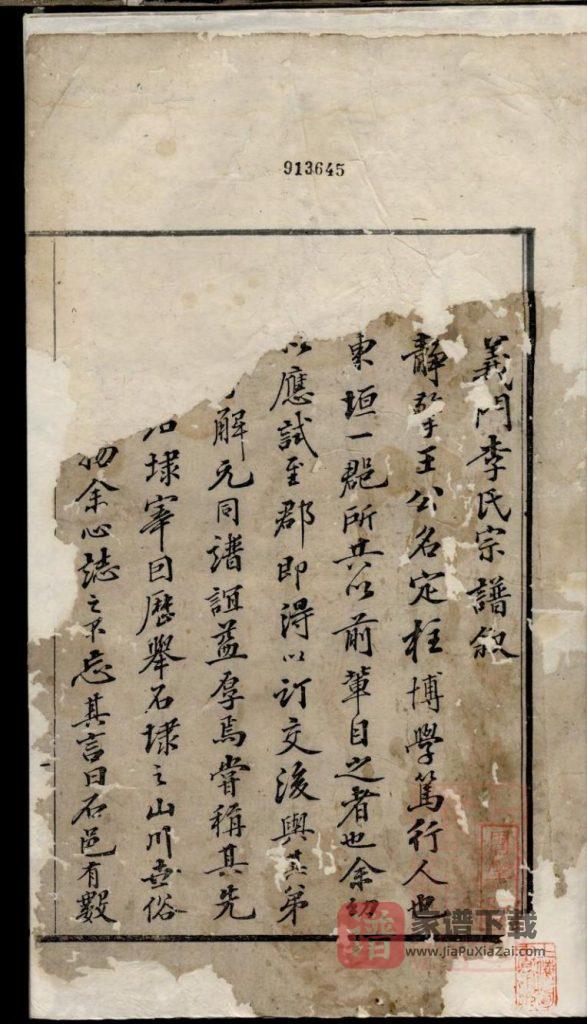 913645
義門李氏宗譜叙
靜掌王公名定柱博學篤行人也
東垣一郡所共以前輩目之者也余幼
以應試至郡即得以訂交後與其弟
解元同譜誼益厚焉嘗稱其先
石埭宰因歷舉石埭之山川風俗
物余心誌之不忘其言曰石邑有數
家谱下载
www.JiaPuXiaZai.com